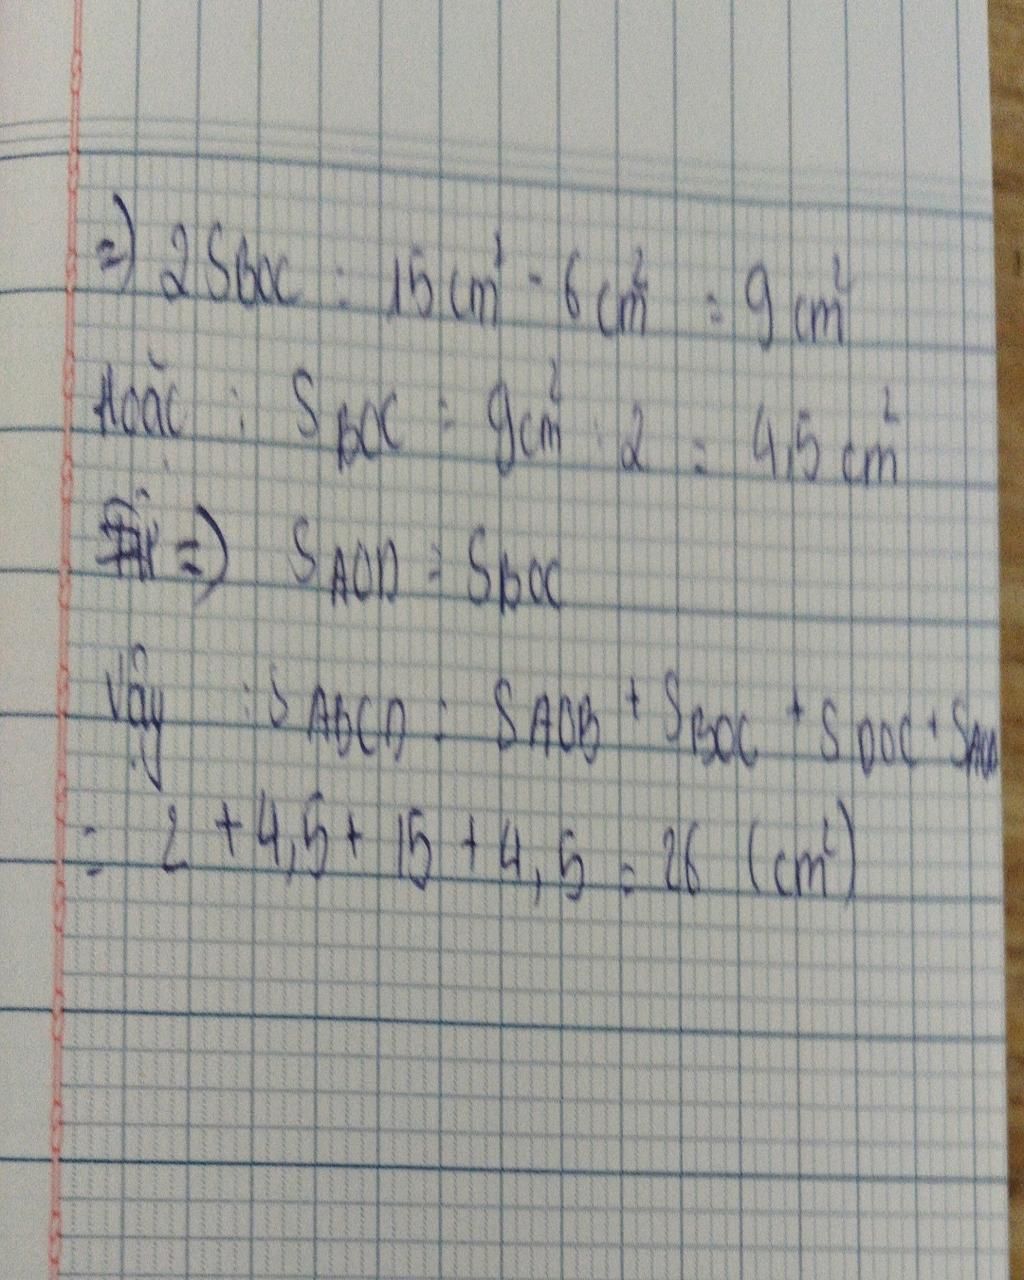 =) 2 SBOC = 15 cm² - 6 cm² = 9 cm²
Hoặc : SBOC = 9cm² : 2 = 4,5 cm²
=) SAOD = SBOC
Vậy : SABCD = SAOB + SBOC + SDOC + SAOD
= 2 + 4,5 + 15 + 4,5 = 26 (cm²)